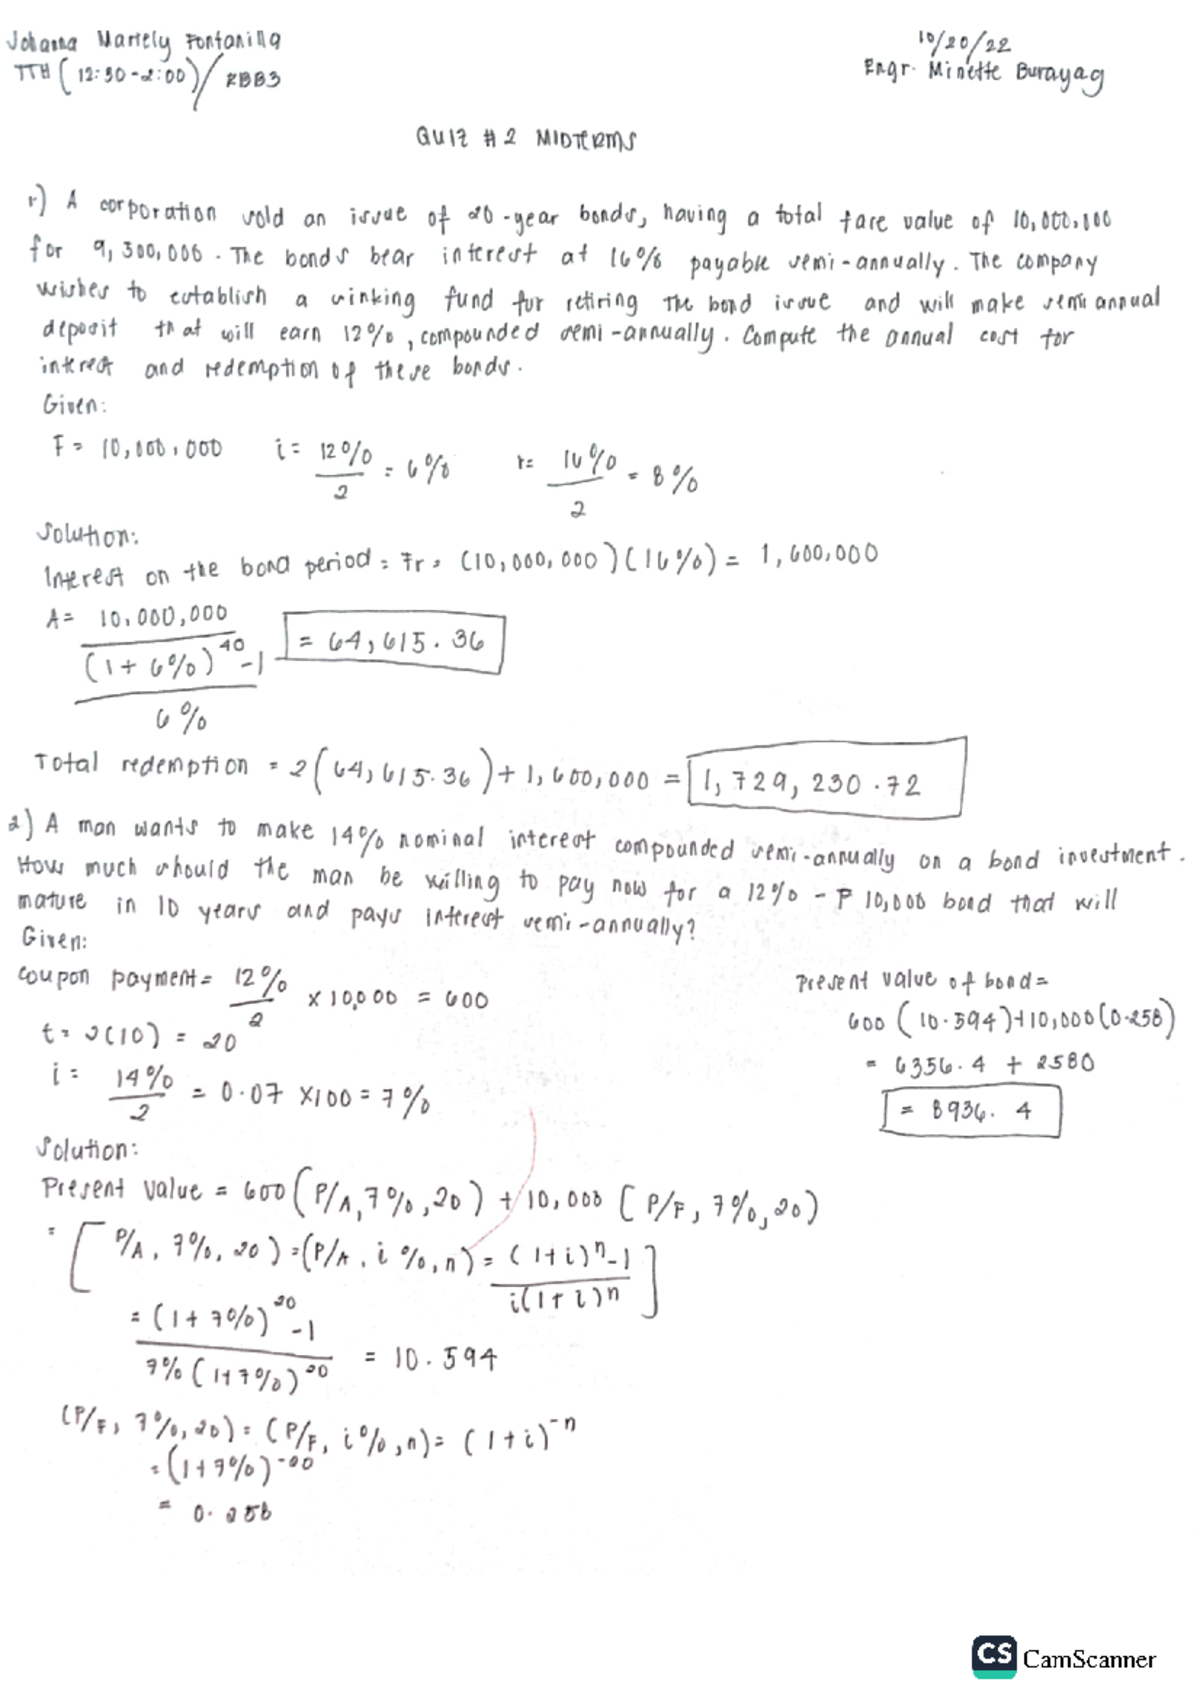 Johanna Martely Fontanilla
10/20/22
TTH (12:30-2:00)/ RBB3
Engr. Minette Burayag
QUIZ # 2 MIDTERMS
1.) A corporation sold an issue of 20-year bonds, having a total fare value of 10,000,000
for 9,300,000. The bonds bear interest at 16% payable semi-annually. The company
wishes to establish a sinking fund for retiring the bond issue and will make semi annual
deposit that will earn 12%, compounded semi-annually. Compute the annual cost for
interest and redemption of these bonds.
Given:
F = 10,000,000 i = 12%/2 = 6% r = 16%/2 = 8%
Solution:
Interest on the bond period = Fr = (10,000,000)(16%) = 1,600,000
A = 10,000,000 / (((1 + 6%)^40 - 1) / 6%) = 64,615.36
Total redemption = 2(64,615.36) + 1,600,000 = 1,729,230.72
2) A man wants to make 14% nominal interest compounded semi-annually on a bond investment.
How much should the man be willing to pay now for a 12% - ₱ 10,000 bond that will
mature in 10 years and pays interest semi-annually?
Given:
Coupon payment = 12%/2 x 10,000 = 600
t = 2(10) = 20
i = 14%/2 = 0.07 x100 = 7%
Present value of bond =
600 (10.594) + 10,000 (0.258)
= 6356.4 + 2580
= 8936.4
Solution:
Present value = 600 (P/A, 7%, 20) + 10,000 (P/F, 7%, 20)
= [P/A, 7%, 20) = (P/A, i %, n) = (1+i)^n - 1 / i(1+i)^n]
= (1 + 7%)^20 - 1 / 7% (1+7%)^20 = 10.594
(P/F, 7%, 20) = (P/F, i%, n) = (1+i)^-n
= (1+7%)^-20
= 0.258
CS CamScanner